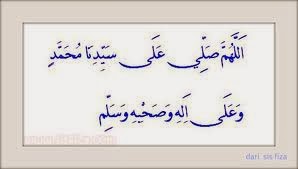 اَللَّهُمَّ صَلِّي عَلَى سَيِّدِنَا مُحَمَّدٍ
وَعَلَى اَلِهِ وَصَحْبِهِ وَسَلِّم
dari sis fiza